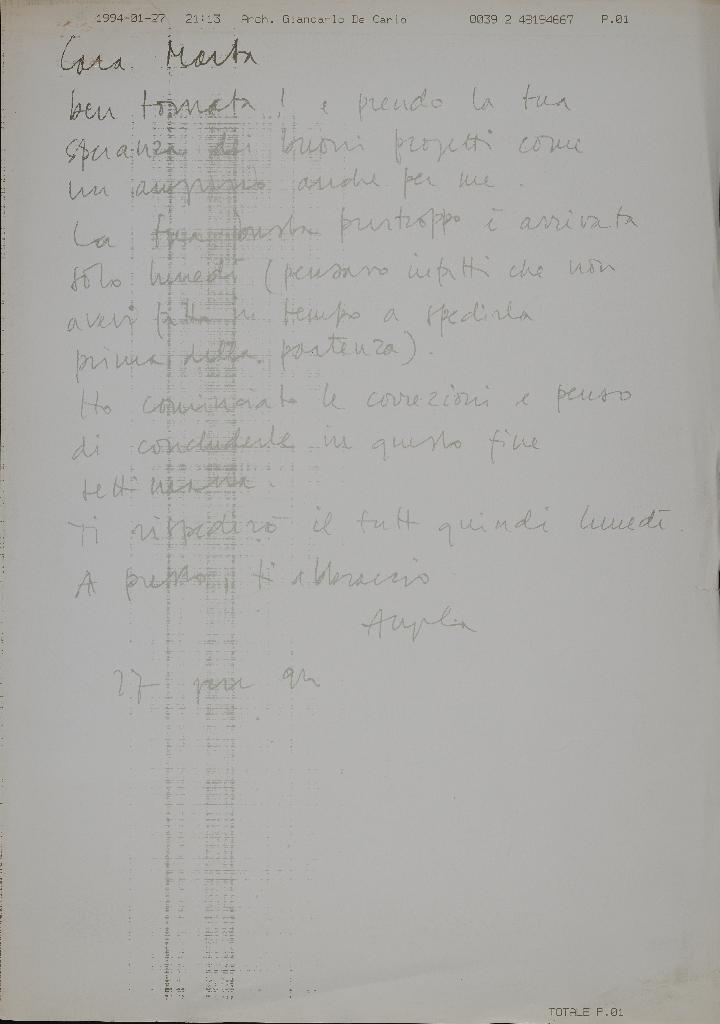 1994-01-27 21:13 Arch. Giancarlo De Carlo 0039 2 48194667 P.01
Cara Marta
ben tornata! e prendo la tua
speranza di buoni progetti come
un augurio anche per me.
La tua busta purtroppo è arrivata
solo lunedì (pensavo infatti che non
avevi fatto in tempo a spedirla
prima della partenza).
Ho cominciato le correzioni e penso
di concluderle in questo fine
settimana.
Ti rispedirò il tutt quindi lunedì.
A presto, ti abbraccio
27
TOTALE P.01